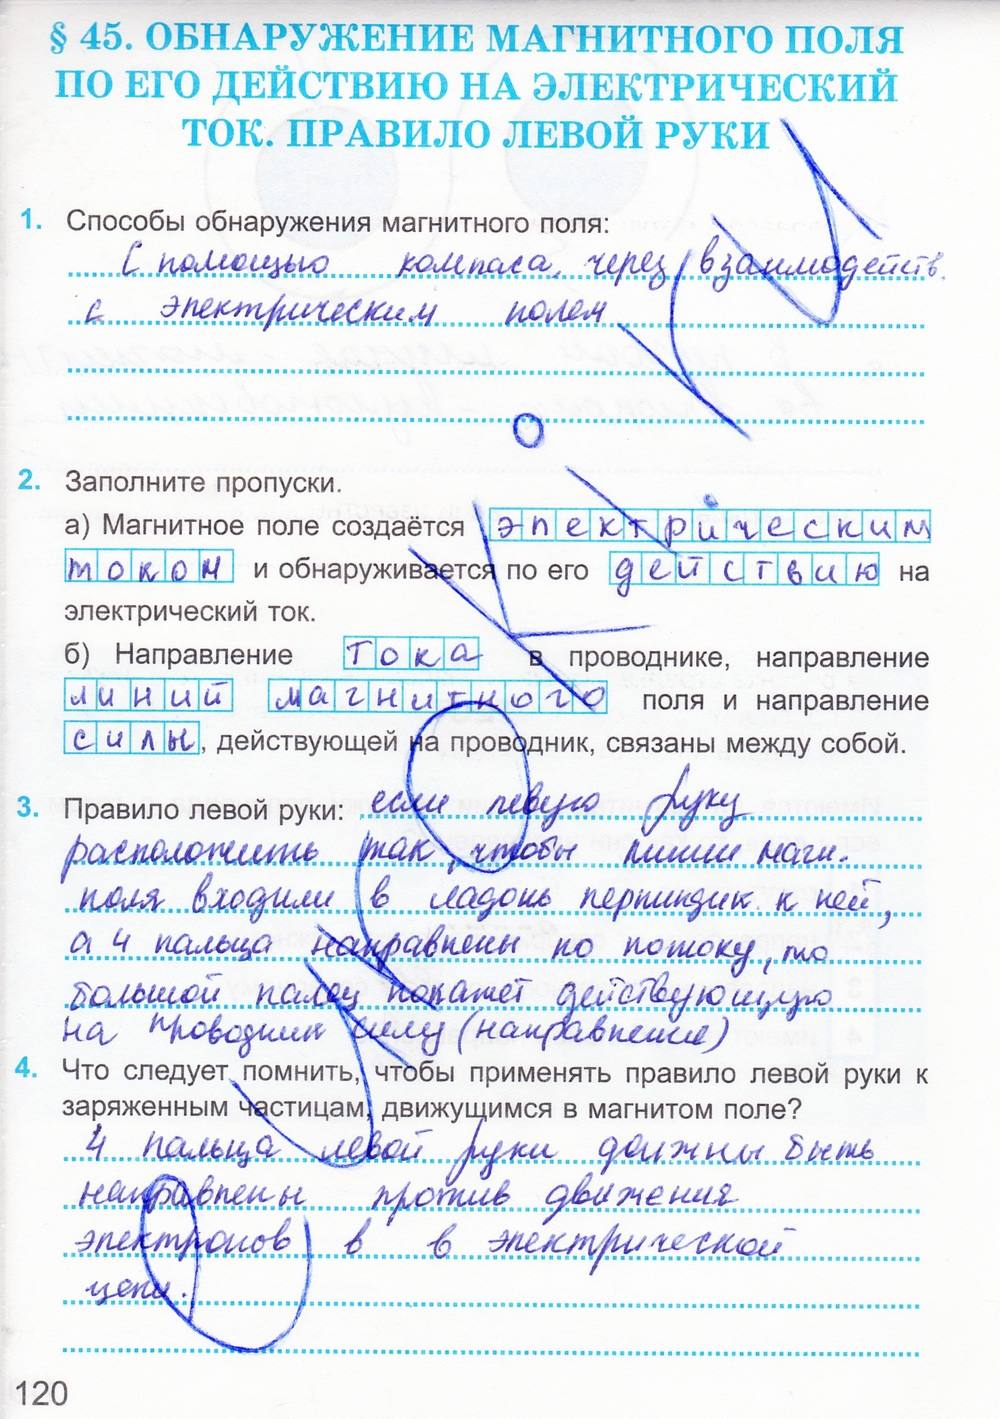 § 45. ОБНАРУЖЕНИЕ МАГНИТНОГО ПОЛЯ
ПО ЕГО ДЕЙСТВИЮ НА ЭЛЕКТРИЧЕСКИЙ
ТОК. ПРАВИЛО ЛЕВОЙ РУКИ
1. Способы обнаружения магнитного поля:
С помощью компаса, через взаимодейств.
с электрическим полем
2. Заполните пропуски.
а) Магнитное поле создаётся электрическим
током и обнаруживается по его действию на
электрический ток.
б) Направление тока в проводнике, направление
линий магнитного поля и направление
силы, действующей на проводник, связаны между собой.
3. Правило левой руки: если левую руку
расположить так, чтобы линии магн.
поля входили в ладонь перпиндик. к ней,
а 4 пальца направлены по потоку, то
большой палец покажет действующую
на проводник силу (направление)
4. Что следует помнить, чтобы применять правило левой руки к
заряженным частицам, движущимся в магнитом поле?
4 пальца левой руки должны быть
направлены против движения
электронов в в электрической
цепи.
120